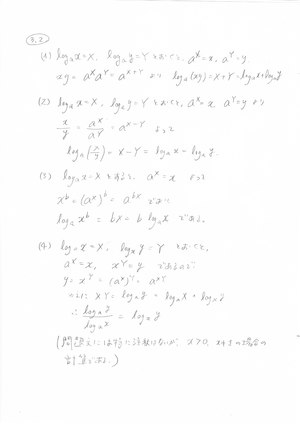 3.2
(1) log_a x = X, log_a y = Y とおくと, a^X = x, a^Y = y.
xy = a^X a^Y = a^{X+Y} より log_a(xy) = X+Y = log_a x + log_a y
(2) log_a x = X, log_a y = Y とおくと, a^X = x a^Y = y より
x/y = a^X/a^Y = a^{X-Y} よって
log_a(x/y) = X-Y = log_a x - log_a y.
(3) log_a x = X とおると, a^X = x よって
x^b = (a^X)^b = a^{bX} であり
log_a x^b = bX = b log_a x である.
(4) log_a x = X, log_x y = Y とおくと,
a^X = x, x^Y = y であるので
y = x^Y = (a^X)^Y = a^{XY}
XY = log_a y = log_a x · log_x y
∴ log_a y / log_a x = log_x y
(問題文には特に記載はないが, x>0, x≠1 の場合の
である.)